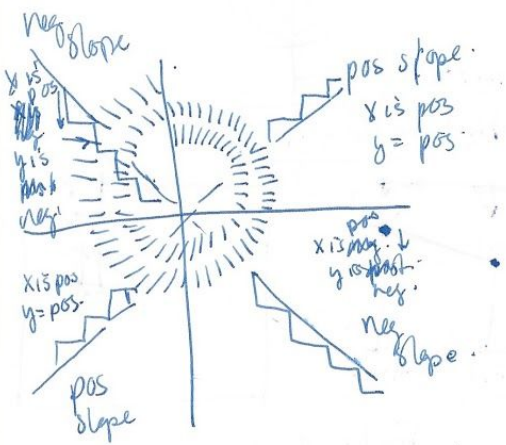 neg
slope
x is
pos
y is
neg.
pos slope.
x is pos
y = pos
x is pos
y = pos.
pos
slope
pos
x is neg. ↓
y is
neg.
neg
slope.